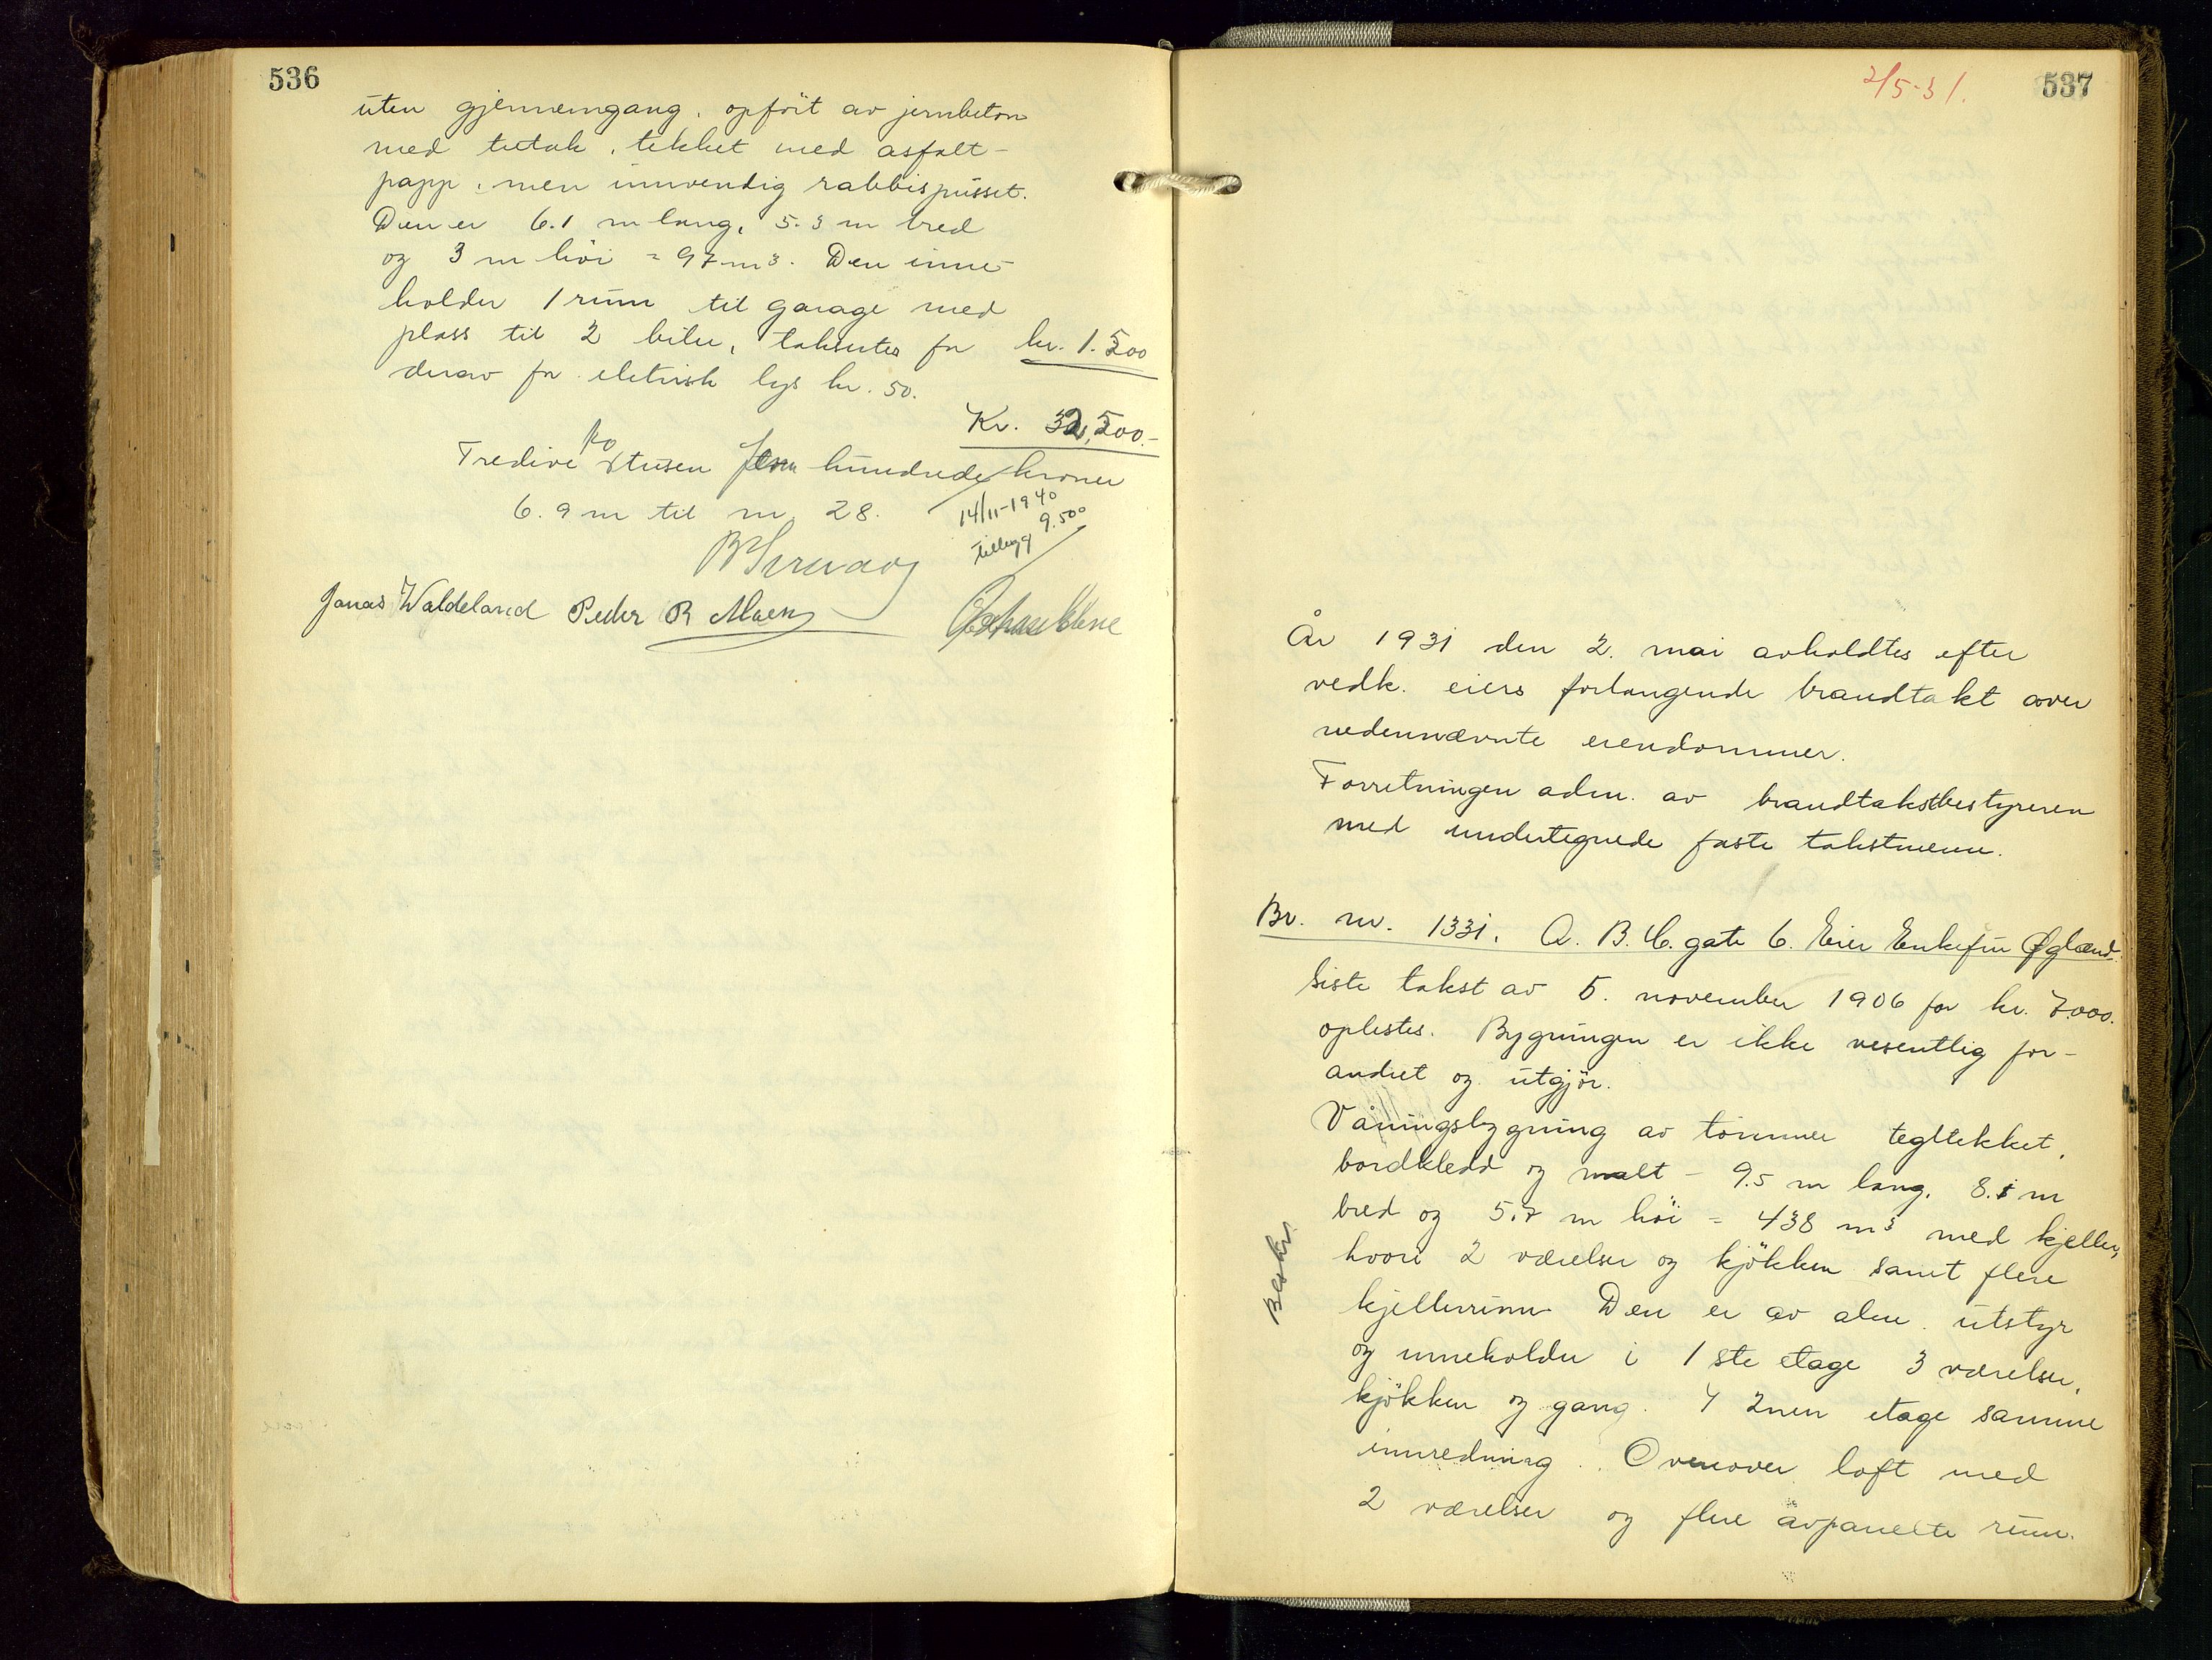 536
uten gjennemgang, opført av jernbeton
med tretak, tekket med asfalt-
papp, men innvendig rabbispusset.
Den er 6.1 m lang, 5.3 m bred
og 3 m høi = 97 m³. Den inne-
holder 1 rum til garage med
plass til 2 biler, taksertes for kr. 1.500
derav for eletrisk lys kr. 50.
Kr. 32,500.-
Tredive to tusen fem hundrede kroner
6.9 m til nr. 28.
14/11-1940
tillegg 9.500
Jonas Waldeland Peder R Moen
2/5-31.
537
År 1931 den 2. mai avholdtes efter
vedk. eiers forlangende brandtakt over
nedennævnte eiendommer.
Forretningen adm. av brandtakstbestyreren
med undertegnede faste takstmenn.
Br. nr. 1331. A. B. C. gate 6. Eier Enkefru Øglænd.
Siste takst av 5. november 1906 for kr. 7.000.
oplestes. Bygningen er ikke vesentlig for-
andret og utgjør.
Våningsbygning av tømmer tegltekket,
bordkledd og malt - 9.5 m lang, 8.1 m
bred og 5.7 m høi = 438 m³ med kjeller,
hvori 2 værelser og kjøkken samt flere
kjellerrum. Den er av alm. utstyr
og inneholder i 1ste etage 3 værelser,
kjøkken og gang. I 2nen etage samme
innredning. Ovenover loft med
2 værelser og flere avpanelte rum.